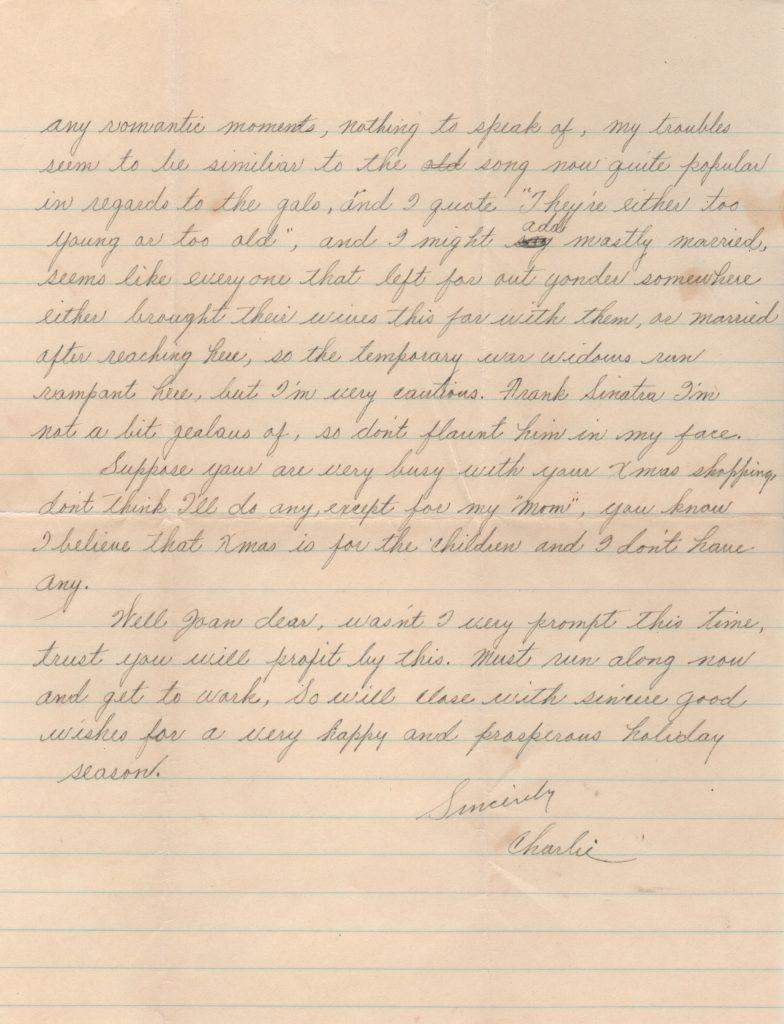 any romantic moments, nothing to speak of, my troubles
seem to be similiar to the old song now quite popular
in regards to the gals, and I quote "They're either too
young or too old", and I might add mostly married,
seems like everyone that left for out yonder somewhere
either brought their wives this far with them, or married
after reaching here, so the temporary war widows run
rampant here, but I'm very cautious. Frank Sinatra I'm
not a bit jealous of, so don't flaunt him in my face.
Suppose your are very busy with your Xmas shopping,
dont think I'll do any, except for my "Mom", you know
I believe that Xmas is for the children and I don't have
any.
Well Joan dear, wasn't I very prompt this time,
trust you will profit by this. Must run along now
and get to work, so will close with sincere good
wishes for a very happy and prosperous holiday
season.
Sincerely
Charlie